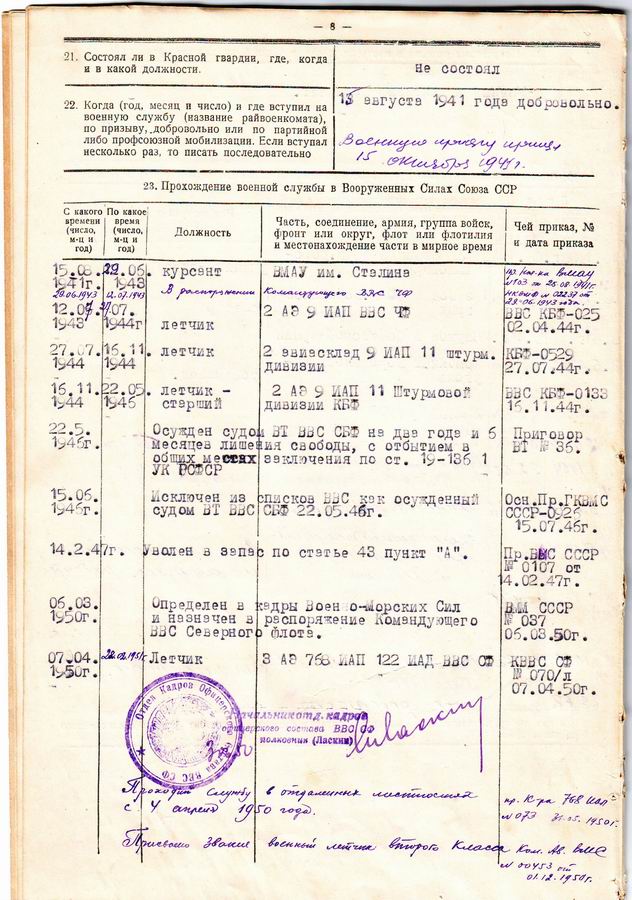 — 8 —
21. Состоял ли в Красной гвардии, где, когда
и в какой должности.
Не состоял
22. Когда (год, месяц и число) и где вступил на
военную службу (название райвоенкомата),
по призыву, добровольно или по партийной
либо профсоюзной мобилизации. Если вступал
несколько раз, то писать последовательно
15 августа 1941 года добровольно.
Военную присягу принял
15 октября 1941г.
23. Прохождение военной службы в Вооруженных Силах Союза ССР
С какого времени (число, м-ц и год)
По какое время (число, м-ц и год)
Должность
Часть, соединение, армия, группа войск,
фронт или округ, флот или флотилия
и местонахождение части в мирное время
Чей приказ, №
и дата приказа
15.08. 29.06. курсант ВМАУ им. Сталина пр. Нач-ка ВМАУ
1941г. 1943 №103 от 25.08.1941г.
29.06.1943 12.07.1943 В распоряжении Командующего ВВС ЧФ НКВМФ № 02237 от
29-06-1943 года.
12.07 27.07. 2 АЭ 9 ИАП ВВС ЧФ ВВС КБФ-025
1943 1944г летчик 02.04.44г.
27.07. 16.11. летчик 2 авиасклад 9 ИАП 11 штурм. КБФ-0529
1944 1944 дивизии 27.07.44г.
16.11. 22.05. летчик - 2 АЭ 9 ИАП 11 Штурмовой ВВС КБФ-0133
1944 1946 старший дивизии КБФ 16.11.44г.
22.5. Осужден судом ВТ ВВС СБФ на два года и 6 Приговор
1946г. месяцев лишения свободы, с отбытием в ВТ № 36.
общих местах заключения по ст. 19-136 1
УК РСФСР
15.06. Исключен из списков ВВС как осужденный Осн.Пр.ГКВМС
1946г. судом ВТ ВВС СБФ 22.05.46г. СССР-0926
15.07.46г.
14.2.47г. Уволен в запас по статье 43 пункт "А". Пр.ВМС СССР
№ 0107 от
14.02.47г.
06.03. Определен в кадры Военно-Морских Сил ВММ СССР
1950г. и назначен в распоряжение Командующего № 037
ВВС Северного флота. 06.03.50г.
07.04. Летчик 3 АЭ 768 ИАП 122 ИАД ВВС СФ КВВС СФ
1950г. № 070/л
07.04.50г.
Отдел Кадров Офицерского состава ВВС СФ
Начальник отд. кадров
офицерского состава ВВС СФ
полковник (Ласкин)
Проходил службу в отдаленных местностях пр. К-ра 768 иап
с 4 апреля 1950 года. № 073 31.05.1950г.
Присвоено звание военный летчик второго класса Ком. Ав. ВМС
№ 00453 от
01.12.1950г.